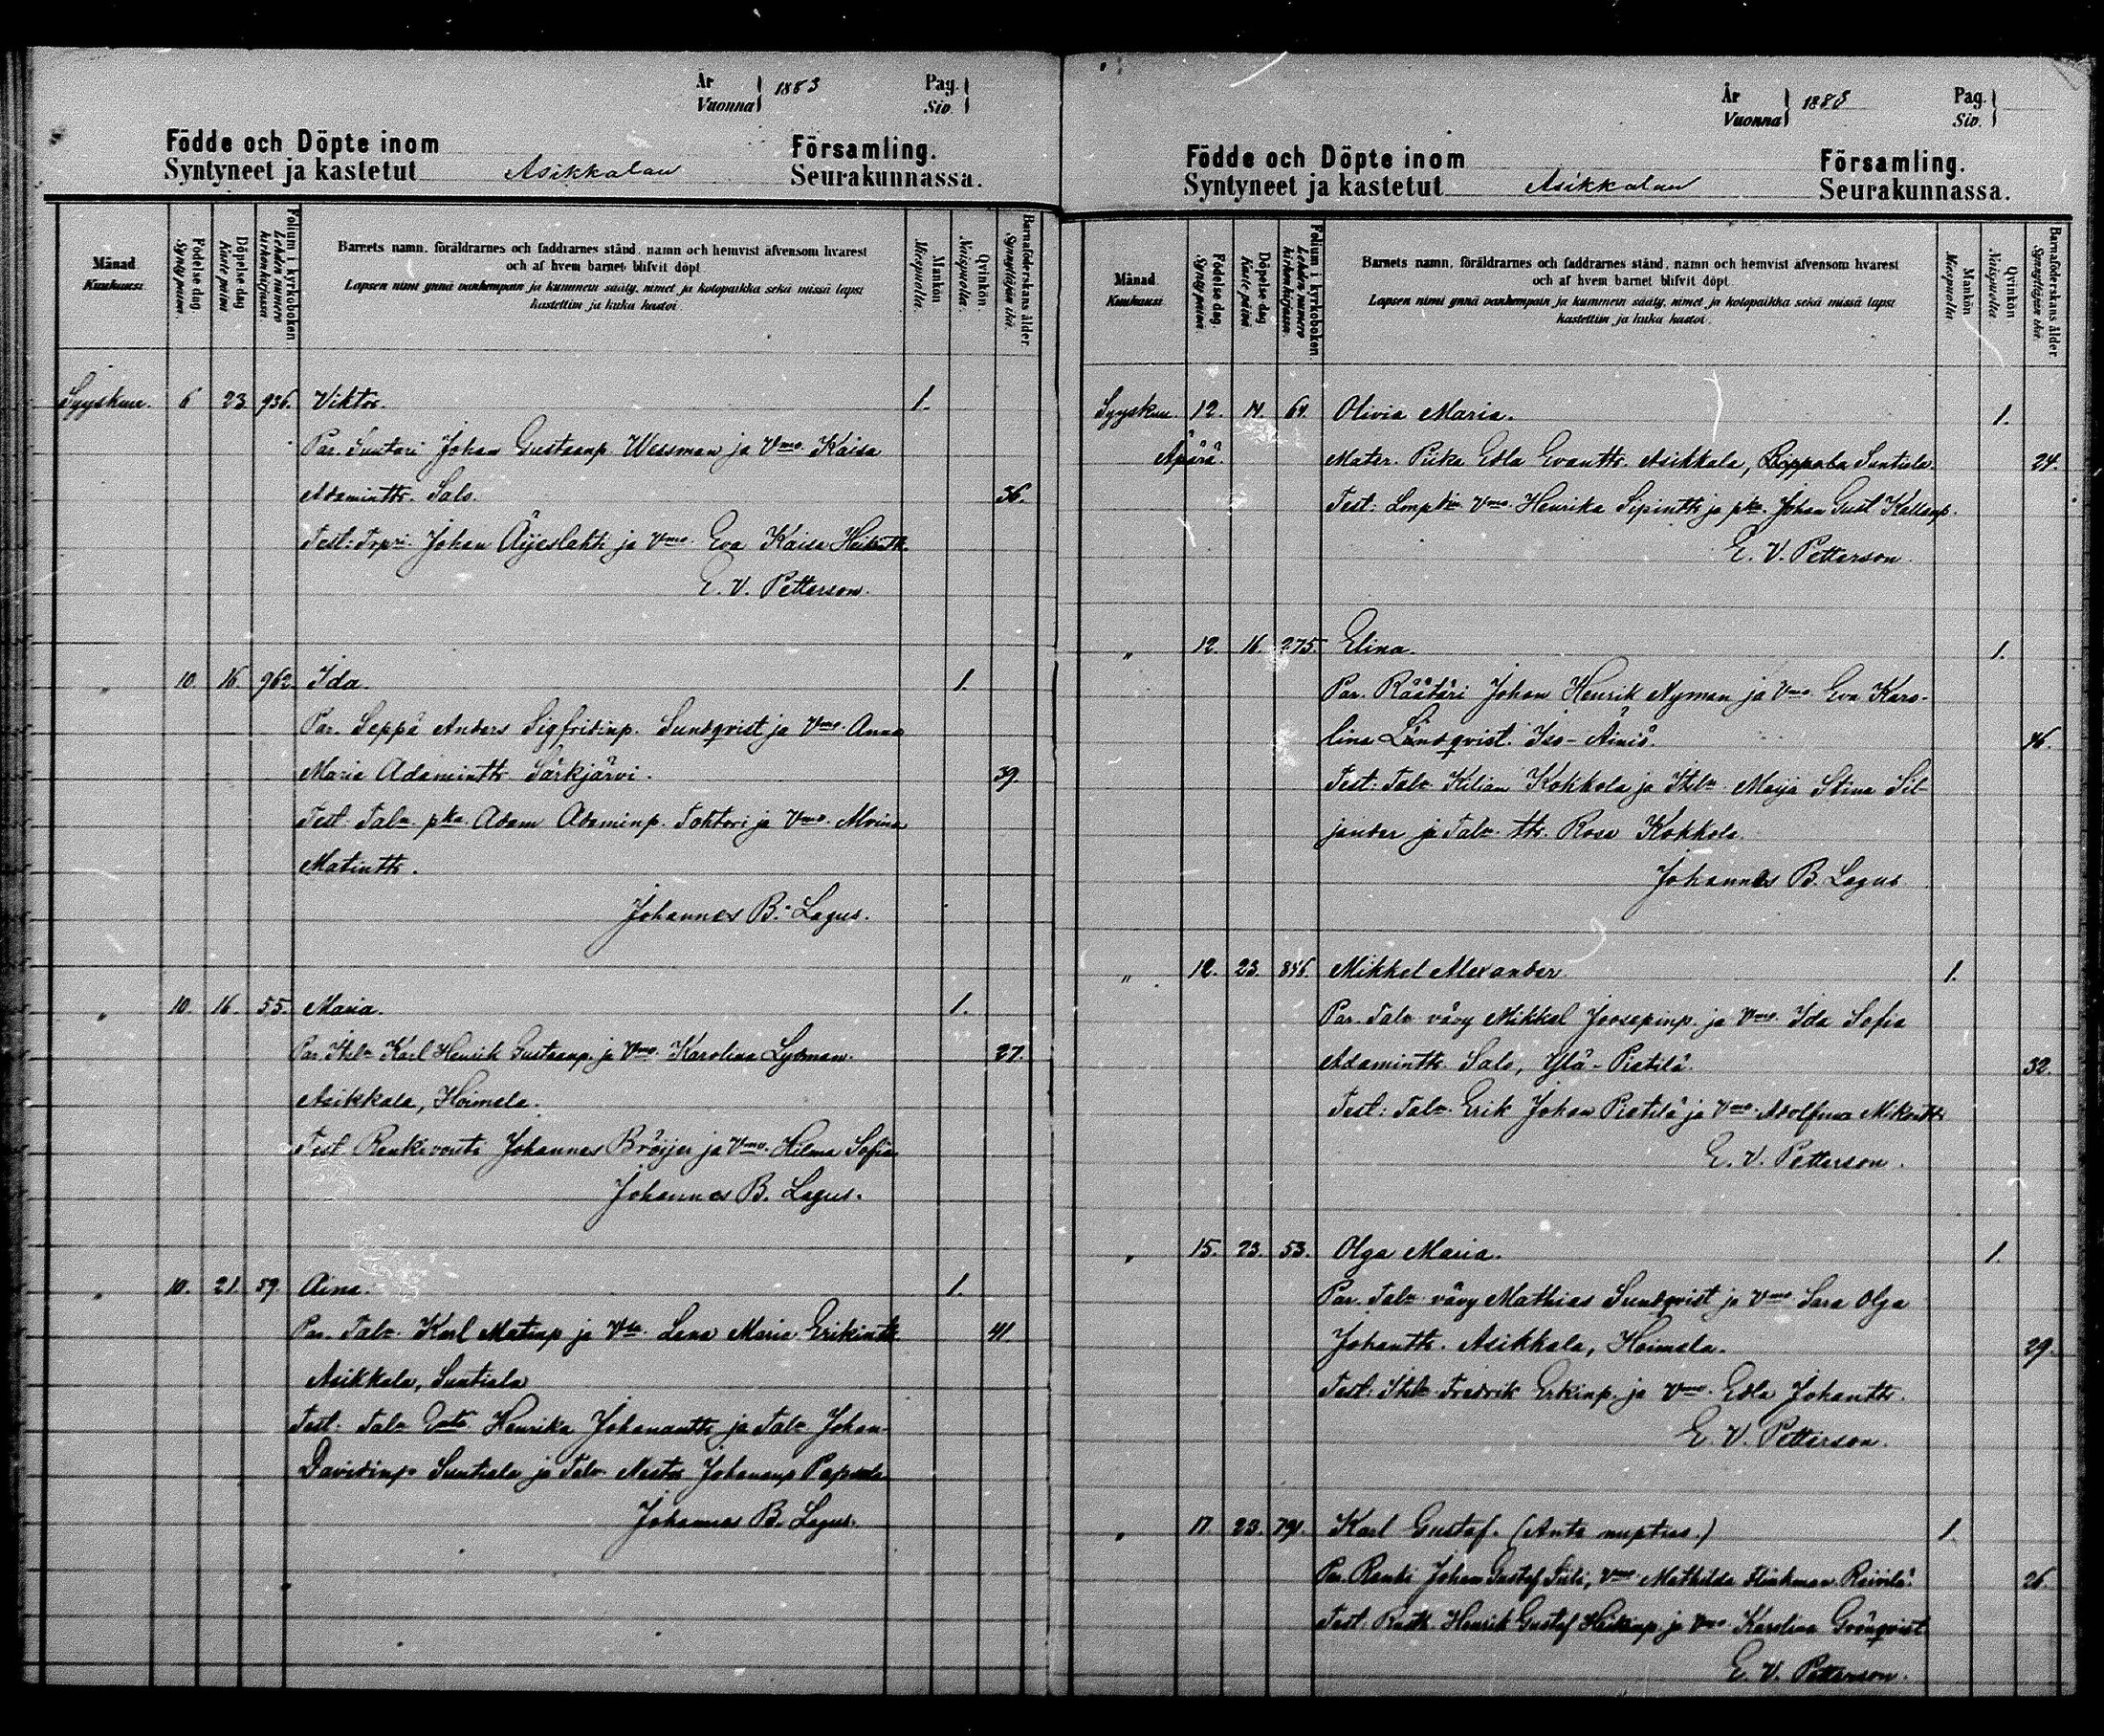 År
Vuonna } 1883
Pag.
Siv. }
Födde och Döpte inom Församling.
Syntyneet ja kastetut Asikkalan Seurakunnassa.
Månad
Kuukausi
Födelse dag.
Synty päivä.
Döpelse dag
Kaste päivä
Folium i kyrkoboken
Lehden numero kirkonkirjassa
Barnets namn, föräldrarnes och faddrarnes stånd, namn och hemvist äfvensom hvarest
och af hvem barnet blifvit döpt
Lapsen nimi ynnä vanhempain ja kummein sääty, nimet ja kotopaikka sekä missä lapsi
kastettiin ja kuka kastoi.
Mankön
Miespuolia.
Qvinkön.
Naispuolia.
Barnaföderskans ålder
Synnyttäjän ikä.
Syyskuu. 6 23 936. Viktor. 1.
Par. Suutari Johan Gustaanp. Wessman ja Vmo. Kaisa
Adamintr. Salo. 36.
Test: Trpri Johan Äijeslahti ja Vmo. Eva Kaisa
E. V. Petterson.
„ 10. 16. 962. Ida. 1.
Par. Seppä Anders Sigfridinp. Sundqvist ja Vmo. Anna
Maria Adamintr. Särkjärvi. 39.
Test. Tal. pka. Adam Adaminp. Tohtori ja Vmo. Alvina
Matintr.
Johannes B. Lagus.
„ 10. 16. 55. Maria. 1.
Par. Itsl. Karl Henrik Gustaanp. ja Vmo. Karolina Lydman. 27.
Asikkala, Hoimela.
Test. Renkivouti Johannes Bröijer ja Vmo. Hilma Sofia
Johannes B. Lagus.
„ 10. 21. 59. Aina. 1.
Par. Tal. Karl Matinp ja Lena Maria Erikintr. 41.
Asikkala, Suntiala
Test. Tal. Henrika Johanantr. ja Tal. Johan
Davidinp. Suntiala ja Tal. Nestor Johananp
Johannes B. Lagus.
År
Vuonna } 1883
Pag.
Siv. }
Födde och Döpte inom Församling.
Syntyneet ja kastetut Asikkalan Seurakunnassa.
Månad
Kuukausi
Födelse dag.
Synty päivä
Döpelse dag
Kaste päivä
Folium i kyrkoboken
Lehden numero kirkonkirjassa.
Barnets namn, föräldrarnes och faddrarnes stånd, namn och hemvist äfvensom hvarest
och af hvem barnet blifvit döpt
Lapsen nimi ynnä vanhempain ja kummein sääty, nimet ja kotopaikka sekä missä lapsi
kastettiin ja kuka kastoi.
Mankön
Miespuolia
Qvinkön
Naispuolia
Barnaföderskans ålder
Synnyttäjän ikä.
Syyskuu. 12. 14. 64. Olivia Maria. 1.
Äpärä. Mater. Piika Edla Evantr. Asikkala, Suntiala. 24.
Test: Vmo. Henrika Sipintr. ja pka. Johan Gust Kallanp.
E. V. Petterson.
„ 12. 16. 275. Elina. 1.
Par. Räätäri Johan Henrik Nyman ja Vmo. Eva Karo-
lina Lindqvist. Iso-Äiniö. 46.
Test: Tal. Kilian Kokkola ja Itsl. Maija Stina Sil-
jander ja Tal. tr. Rosa Kokkola.
Johannes B. Lagus
„ 12. 23. 846. Mikkel Alexander. 1.
Par. Tal. vävy Mikkel Joosepinp. ja Vmo. Ida Sofia
Adamintr. Salo, Ylä-Pietilä. 32.
Test: Tal. Erik Johan Pietilä ja Vmo. Adolfina Mikontr.
E. V. Petterson.
„ 15. 23. 53. Olga Maria. 1.
Par. Tal. vävy Mathias Sundqvist ja Vmo. Sara Olga
Johantr. Asikkala, Hoimela. 29.
Test: Itsl. Fredrik Erkinp. ja Vmo. Edla Johantr.
E. V. Petterson.
„ 17. 23. 791. Karl Gustaf. (Ante nuptias.) 1.
Par. Renki Johan Gustaf Vmo. Mathilda Flinkman. 26.
Test. Henrik Gustaf Heikinp. ja Vmo. Karolina Grönqvist
E. V. Petterson.